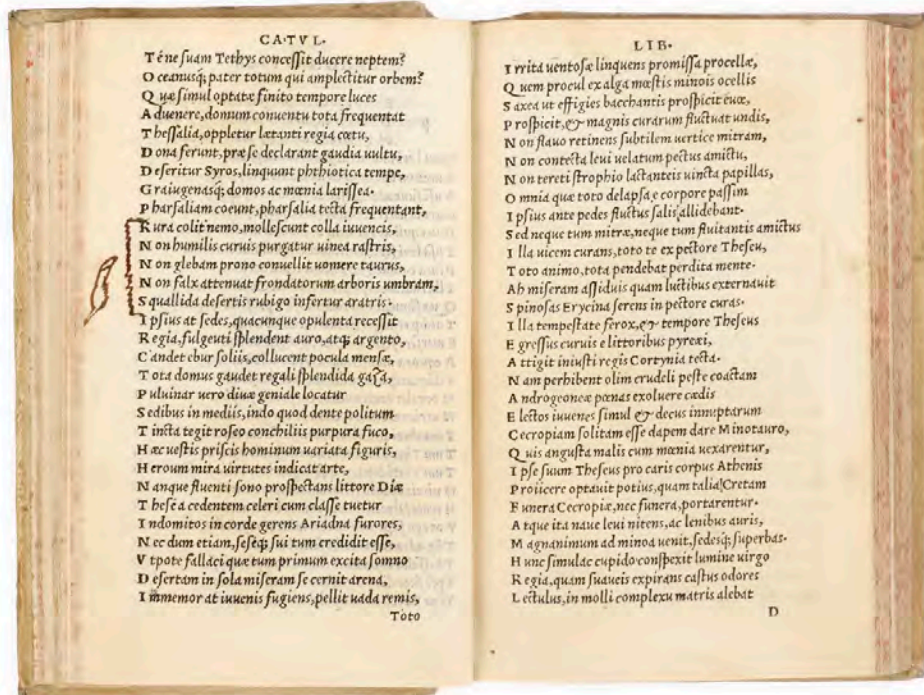 CA·TVL·
T éne ſuam Tethys conceſſit ducere neptem?
O ceanusq; pater totum qui amplectitur orbem?
Q uæ ſimul optatæ finito tempore luces
A duenere, domum conuentu tota frequentat
T heſſalia, oppletur lætanti regia cœtu,
D ona ferunt, præ ſe declarant gaudia uultu,
D eſeritur Syros, linquunt phthiotica tempe,
G raiugenasq; domos ac mœnia lariſſea·
P harſaliam coeunt, pharſalia tecta frequentant,
R ura colit nemo, molleſcunt colla iuuencis,
N on humilis curuis purgatur uinea raſtris,
N on glebam prono conuellit uomere taurus,
N on falx attenuat frondatorum arboris umbram,
S quallida deſertis rubigo infertur aratris·
I pſius at ſedes, quacunque opulenta receſſit
R egia, fulgenti ſplendent auro, atq; argento,
C andet ebur ſoliis, collucent pocula menſæ,
T ota domus gaudet regali ſplendida gaza,
P uluinar uero diuæ geniale locatur
S edibus in mediis, indo quod dente politum
T incta tegit roſeo conchiliis purpura fuco,
H æc ueſtis priſcis hominum uariata figuris,
H eroum mira uirtutes indicat arte,
N anque fluenti ſono proſpectans littore Diæ
T heſea cedentem celeri cum claſſe tuetur
I ndomitos in corde gerens Ariadna furores,
N ec dum etiam, ſeſeq; ſui tum credidit eſſe,
V tpote fallaci quæ tum primum excita ſomno
D eſertam in ſola miſeram ſe cernit arena,
I mmemor at iuuenis fugiens, pellit uada remis,
Toto
LIB·
I rrita uentoſæ linquens promiſſa procellæ,
Q uem procul ex alga mœſtis minois ocellis
S axea ut effigies bacchantis proſpicit euœ,
P roſpicit, & magnis curarum fluctuat undis,
N on flauo retinens ſubtilem uertice mitram,
N on contecta leui uelatum pectus amictu,
N on tereti ſtrophio lactanteis uincta papillas,
O mnia quæ toto delapſa e corpore paſſim
I pſius ante pedes fluctus ſalis allidebant·
S ed neque tum mitræ, neque tum fluitantis amictus
I lla uicem curans, toto te ex pectore Theſeu,
T oto animo, tota pendebat perdita mente·
Ah miſeram aſſiduis quam luctibus externauit
S pinoſas Erycina ſerens in pectore curas·
I lla tempeſtate ferox, & tempore Theſeus
E greſſus curuis e littoribus pyreæi,
A ttigit iniuſti regis Cortynia tecta·
N am perhibent olim crudeli peſte coactam
A ndrogeoneæ pœnas exoluere cædis
E lectos iuuenes ſimul & decus innuptarum
C ecropiam ſolitam eſſe dapem dare Minotauro,
Q uis anguſta malis cum mœnia uexarentur,
I pſe ſuum Theſeus pro caris corpus Athenis
P roiicere optauit potius, quam talia Cretam
F unera Cecropiæ, nec funera, portarentur·
A tque ita naue leui nitens, ac lenibus auris,
M agnanimum ad minoa uenit, ſedesq; ſuperbas·
H unc ſimulac cupido conſpexit lumine uirgo
R egia, quam ſuaueis expirans caſtus odores
L ectulus, in molli complexu matris alebat
D